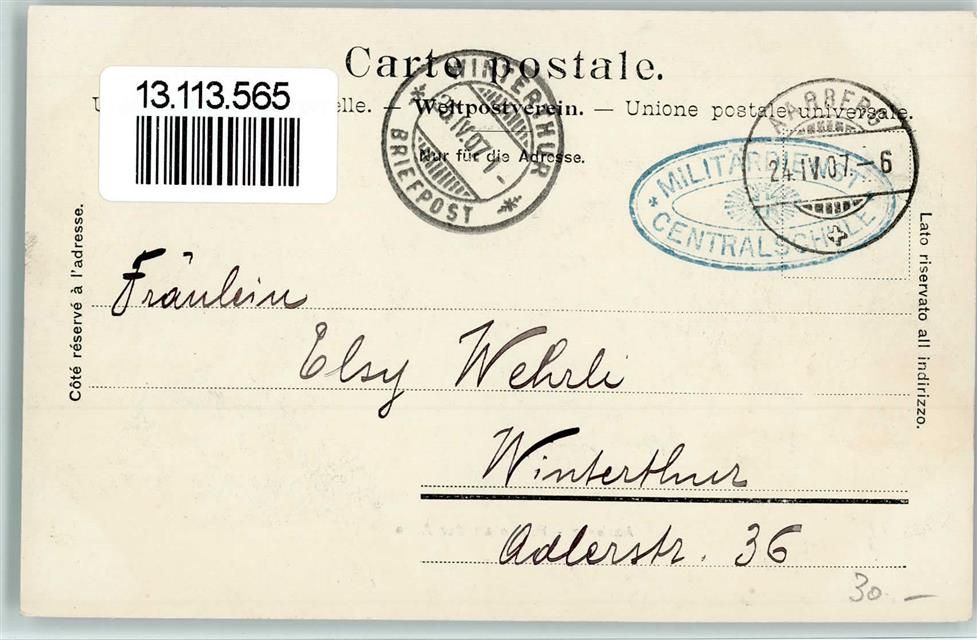 Carte postale.
13.113.565
elle. — Weltpostverein. — Unione postale universale.
Nur für die Adresse.
WINTERTHUR
IV.07
BRIEFPOST
AARBERG
24.IV.07.-6
MILITÄRDIENST
CENTRALSCHULE
Côté réservé à l'adresse.
Lato riservato all' indirizzo.
Fräulein
Elsy Wehrli
Winterthur
Adlerstr. 36
30.—